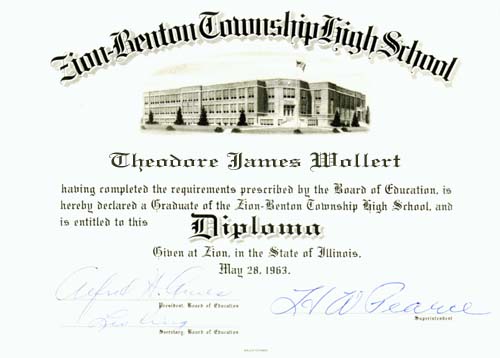 Zion-Benton Township High School
Theodore James Wollert
having completed the requirements prescribed by the Board of Education, is
hereby declared a Graduate of the Zion-Benton Township High School, and
is entitled to this Diploma
Given at Zion, in the State of Illinois,
May 28, 1963.
Alfred H.
President, Board of Education
H W Pearce
Superintendent
Secretary, Board of Education